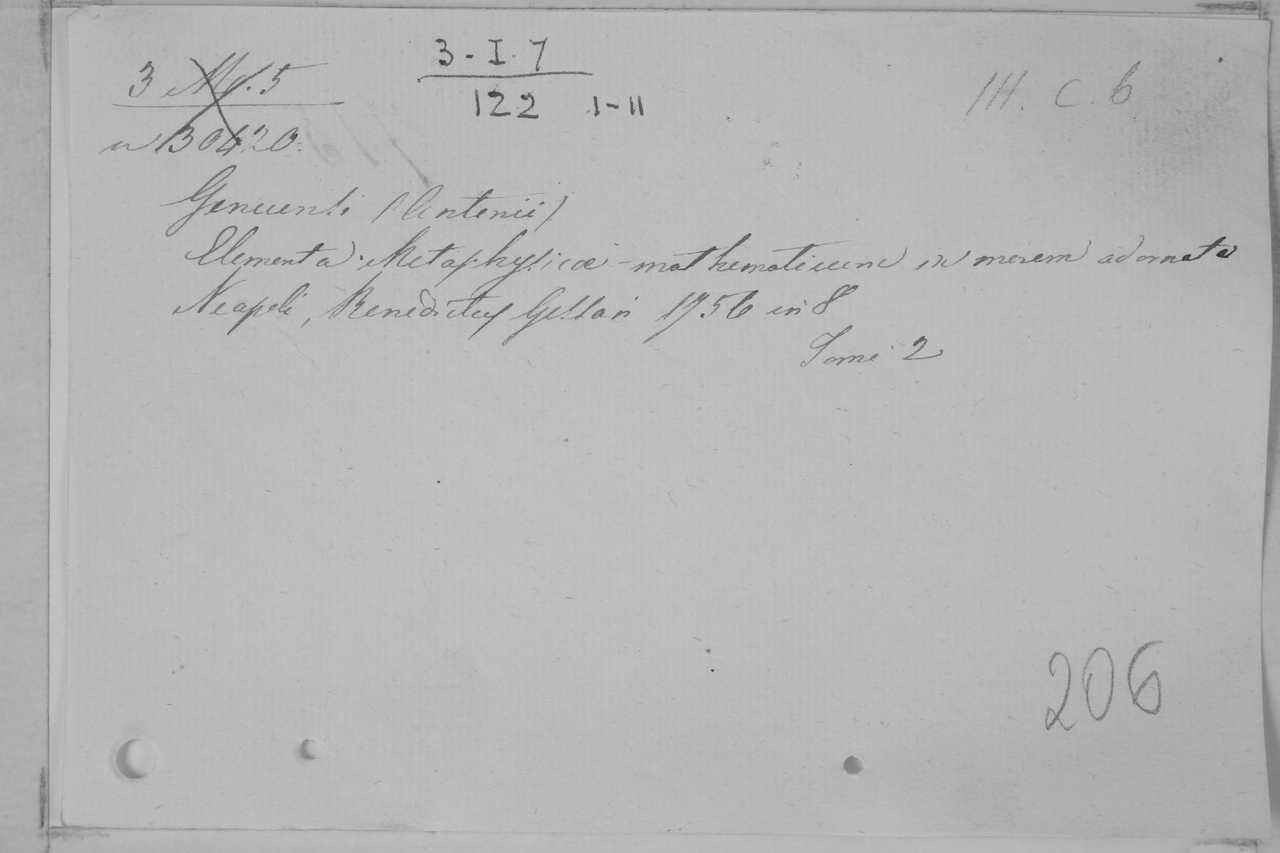 3 M. 5
3-I.7
122 I-II
III. C. 6
n 30420.
Genuensi (Antonii)
Elementa Metaphysicæ - mathematicum in morem adornata
Neapoli, Benedictus Gessari 1756 in 8
Tomi 2
206